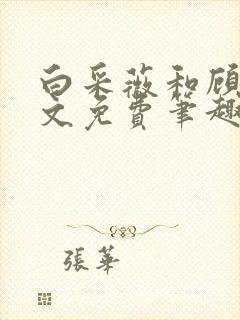 白采薇和顾
文免费笔趣
張華